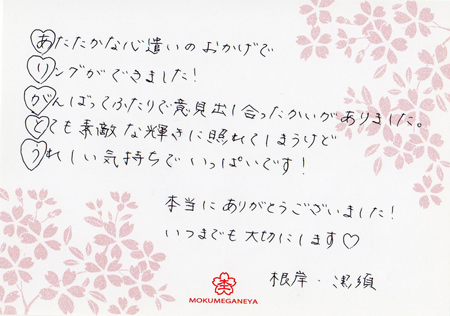 あたたかな心遣いのおかげで
リングができました!
がんばってふたりで意見出し合ったかいがありました。
とても素敵な輝きに照れてしまうけど
うれしい気持ちでいっぱいです!
本当にありがとうございました!
いつまでも大切にします♡
根岸・須
MOKUMEGANEYA